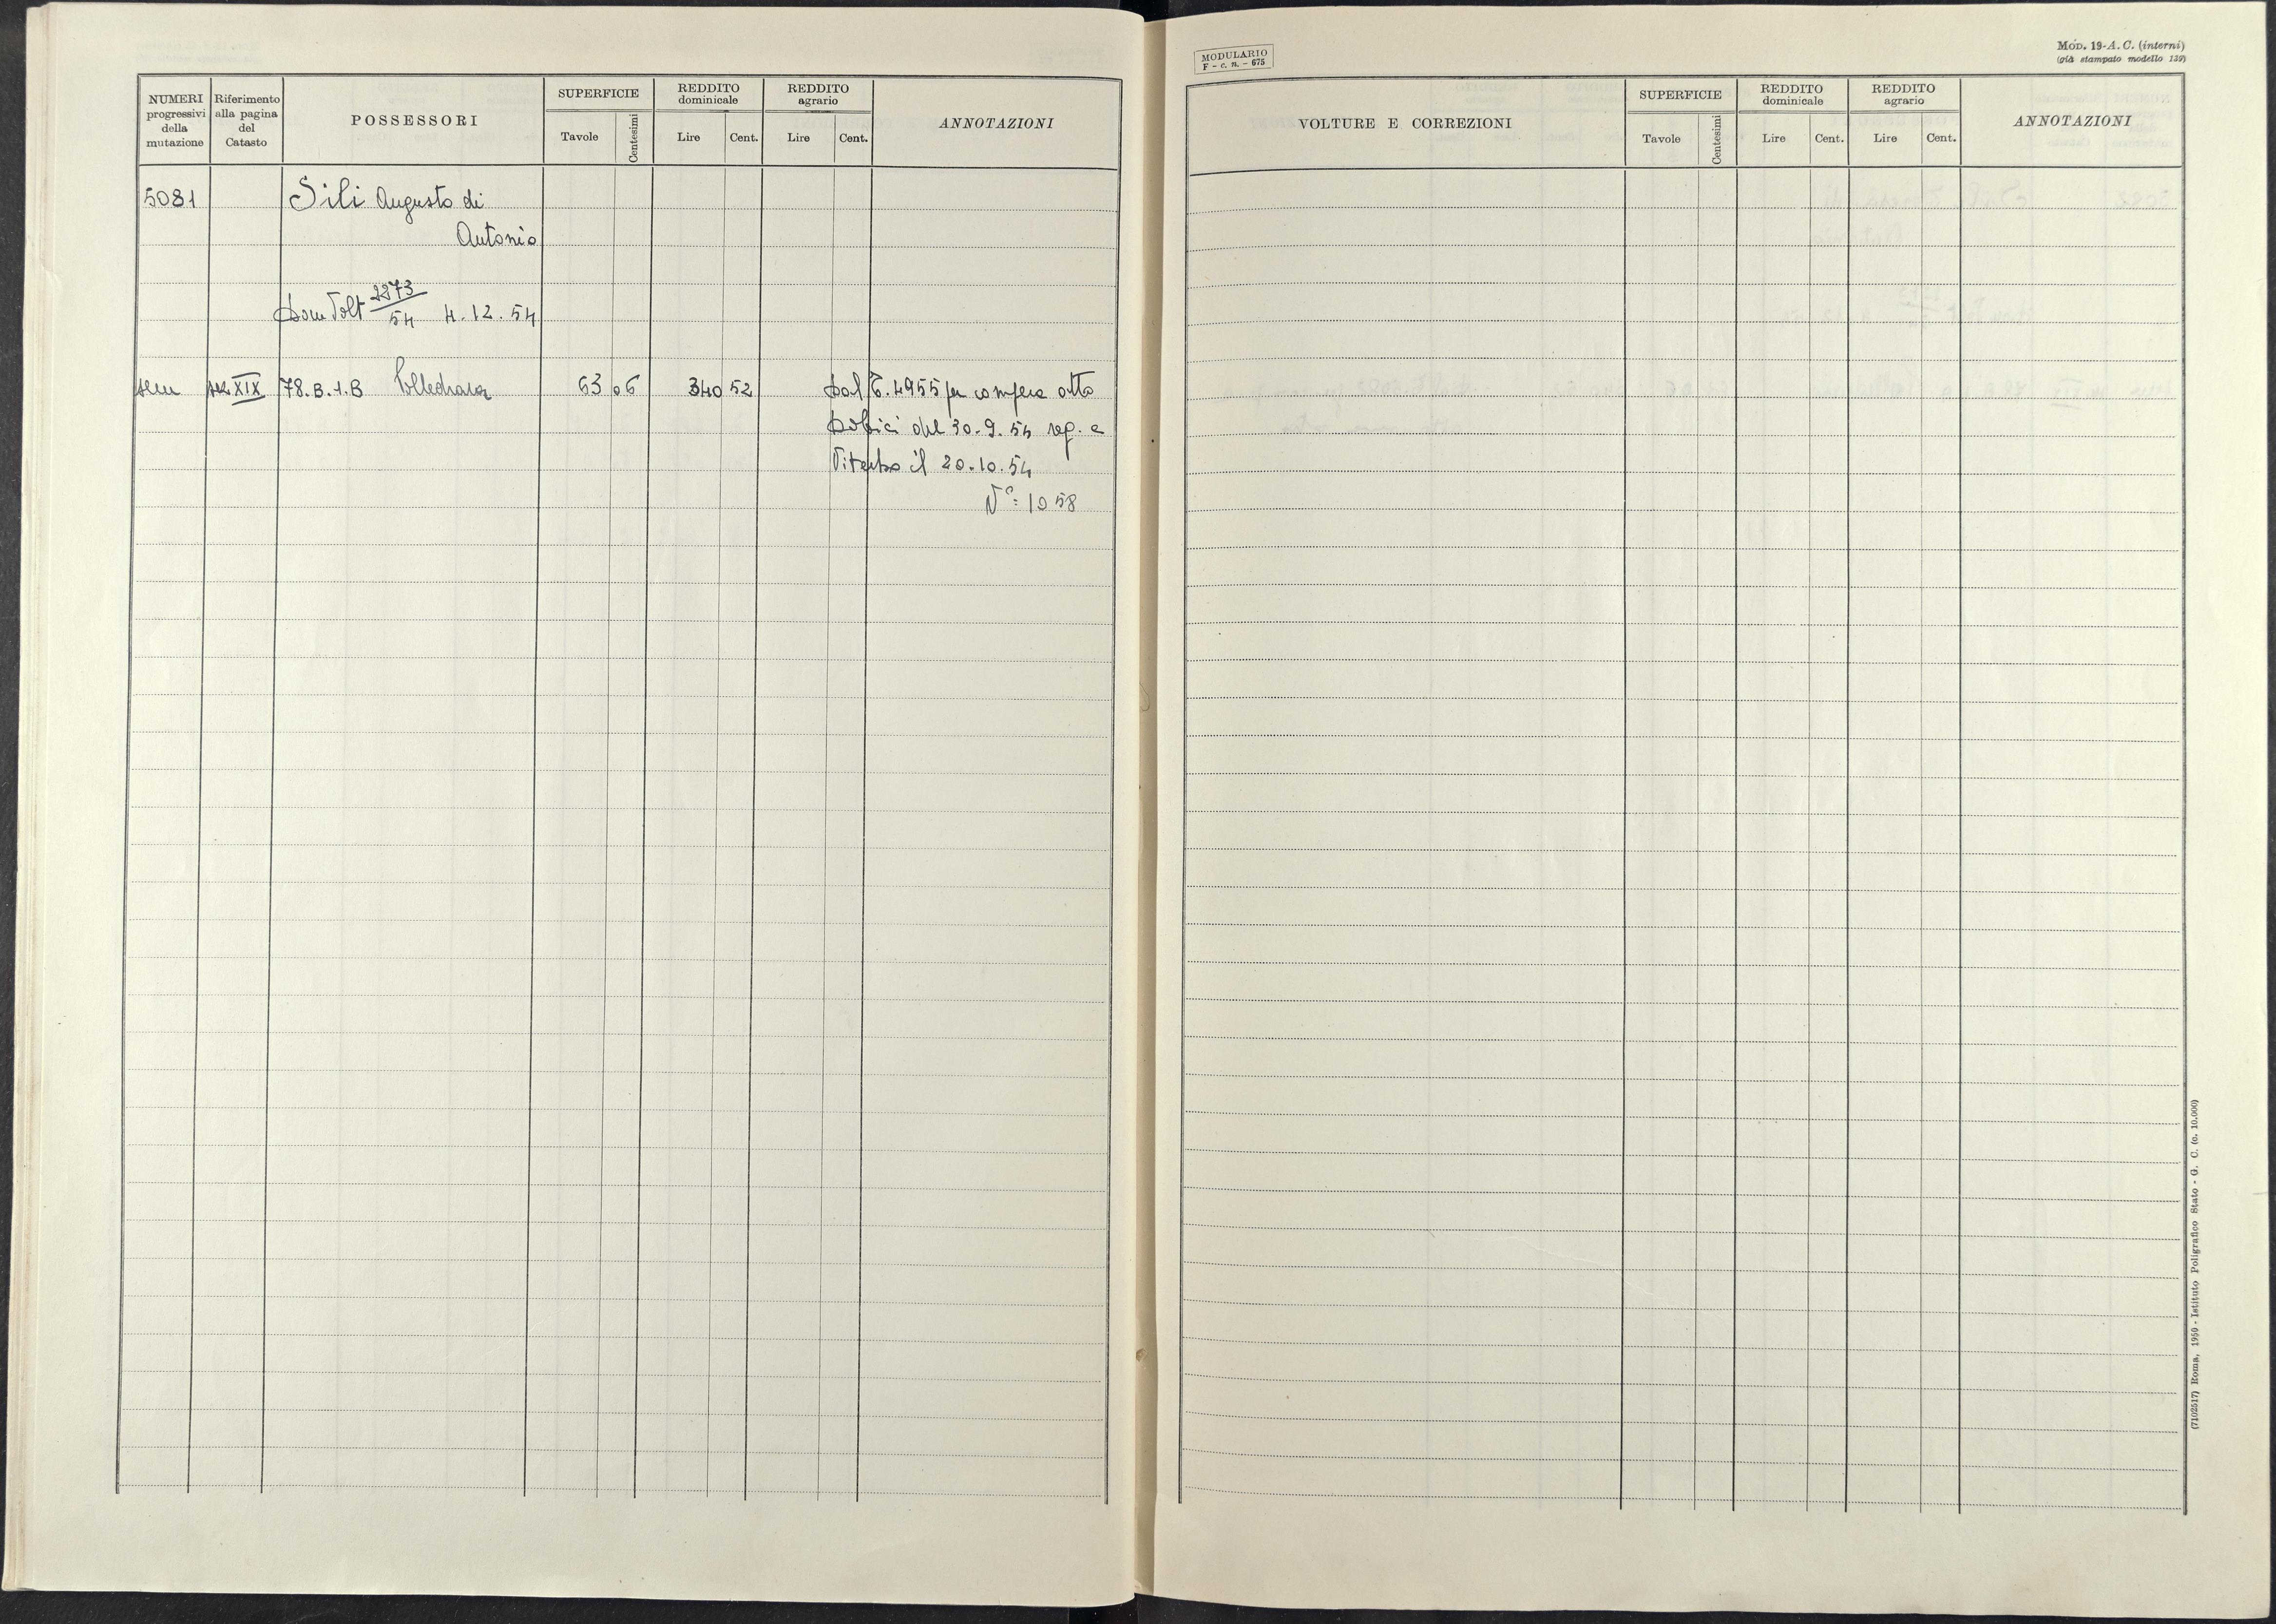 NUMERI progressivi della mutazione
Riferimento alla pagina del Catasto
POSSESSORI
SUPERFICIE
Tavole
Centesimi
REDDITO dominicale
Lire
Cent.
REDDITO agrario
Lire
Cent.
ANNOTAZIONI
5081 Sili Augusto di
Antonio
Dom Volt 2273/54 4.12.54
sem sez XIX 78.B.1.B 63 06 340 52 Dal T. 4955 per compera atto
del 30-9-54 reg. a
Viterbo il 20.10.54
N°: 1058
MODULARIO
F - c. n. - 675
MOD. 19-A. C. (interni)
(già stampato modello 139)
VOLTURE E CORREZIONI
SUPERFICIE
Tavole
Centesimi
REDDITO dominicale
Lire
Cent.
REDDITO agrario
Lire
Cent.
ANNOTAZIONI
(7102517) Roma, 1950 - Istituto Poligrafico Stato - G. C. (c. 10.000)